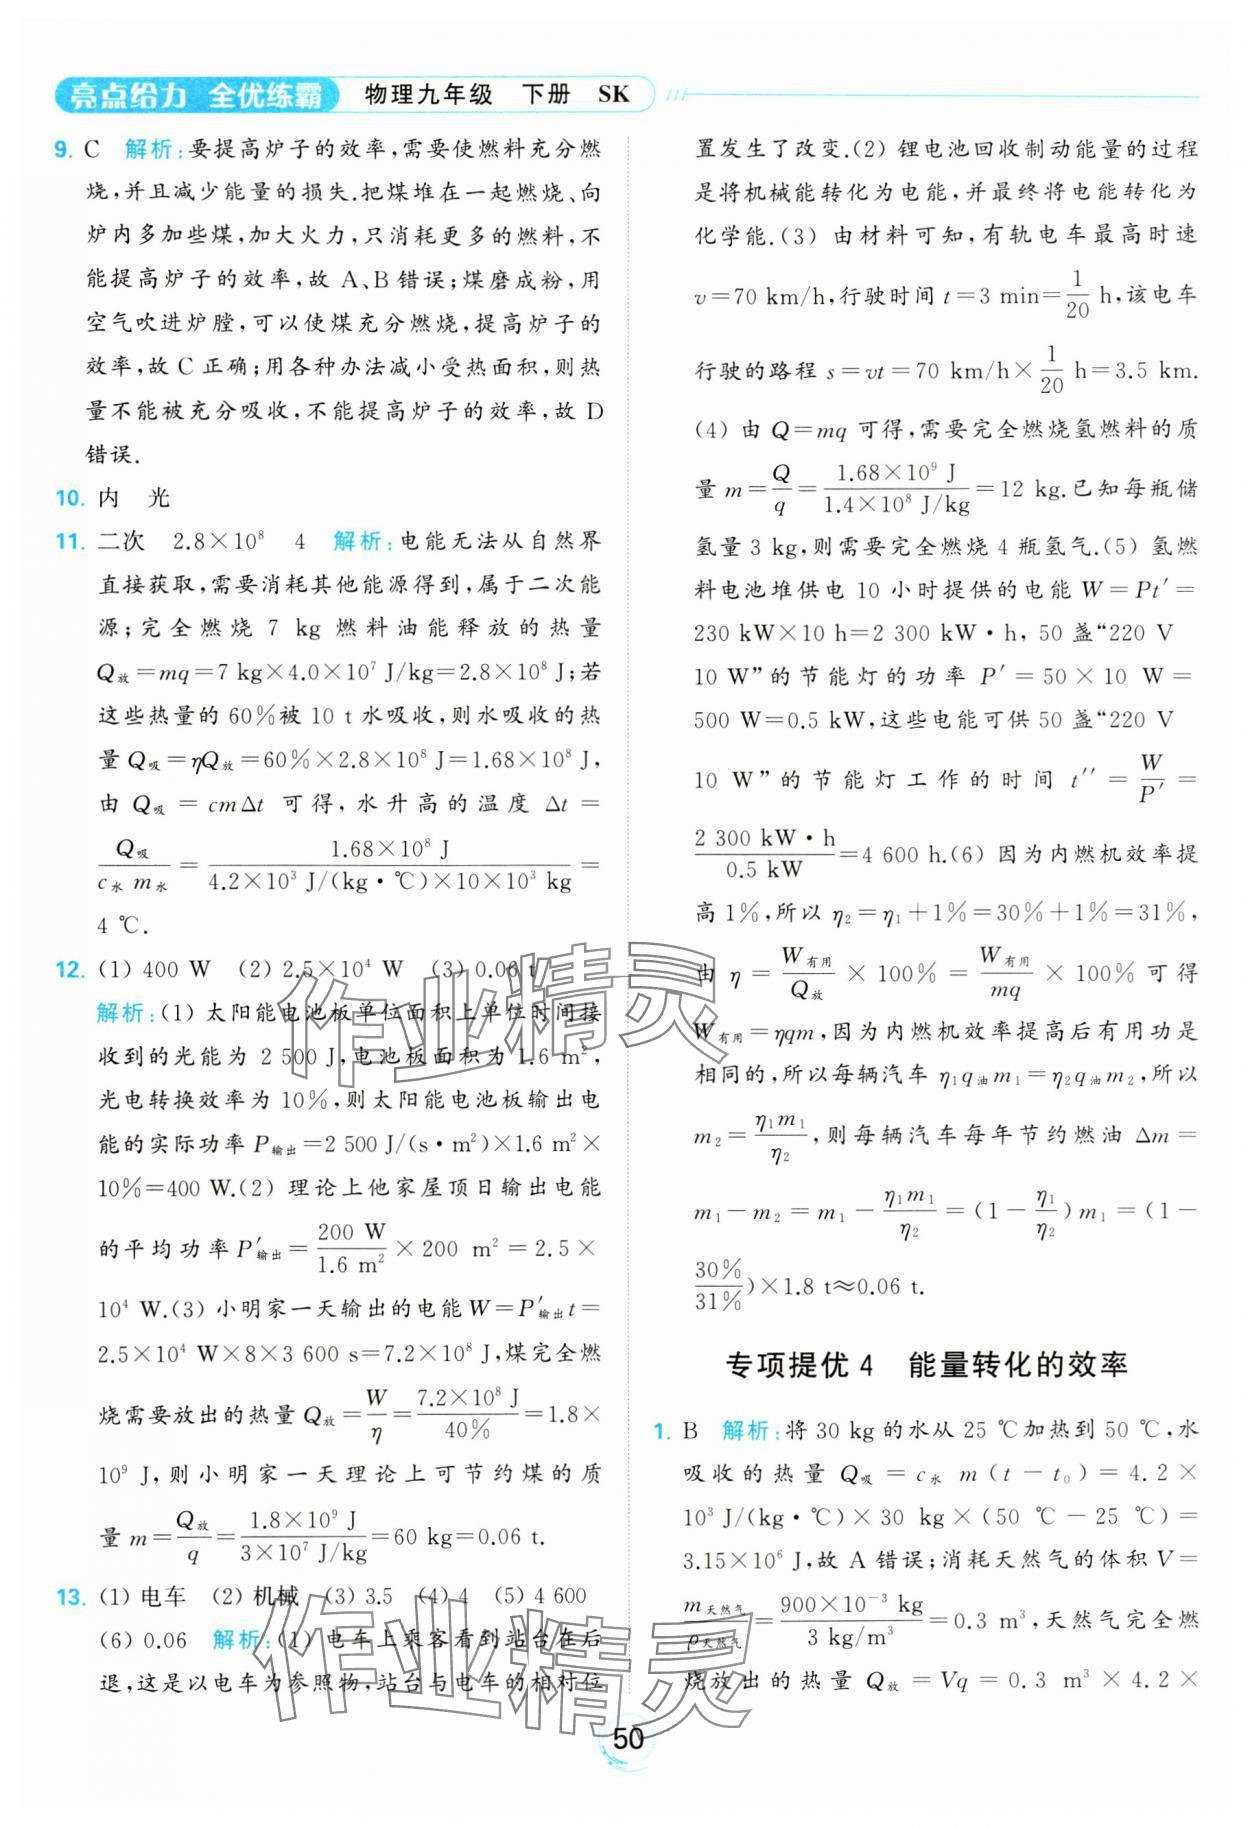 亮点给力 全优练霸 物理九年级 下册 SK
9. C 解析:要提高炉子的效率,需要使燃料充分燃
烧,并且减少能量的损失.把煤堆在一起燃烧、向
炉内多加些煤,加大火力,只消耗更多的燃料,不
能提高炉子的效率,故 A、B 错误;煤磨成粉,用
空气吹进炉膛,可以使煤充分燃烧,提高炉子的
效率,故 C 正确;用各种办法减小受热面积,则热
量不能被充分吸收,不能提高炉子的效率,故 D
错误.
10. 内 光
11. 二次 2.8×10⁸ 4 解析:电能无法从自然界
直接获取,需要消耗其他能源得到,属于二次能
源;完全燃烧 7 kg 燃料油能释放的热量
Q放=mq=7 kg×4.0×10⁷ J/kg=2.8×10⁸ J;若
这些热量的 60%被 10 t 水吸收,则水吸收的热
量 Q吸=ηQ放=60%×2.8×10⁸ J=1.68×10⁸ J,
由 Q吸 = cmΔt 可得,水升高的温度 Δt =
Q吸/(c水 m水) = 1.68×10⁸ J/(4.2×10³ J/(kg·℃)×10×10³ kg) =
4 ℃.
12. (1) 400 W (2) 2.5×10⁴ W (3) 0.06 t
解析:(1) 太阳能电池板单位面积上单位时间接
收到的光能为 2 500 J,电池板面积为 1.6 m²,
光电转换效率为 10%,则太阳能电池板输出电
能的实际功率 P输出=2 500 J/(s·m²)×1.6 m²×
10%=400 W.(2) 理论上他家屋顶日输出电能
的平均功率 P′输出=200 W/1.6 m²×200 m²=2.5×
10⁴ W.(3) 小明家一天输出的电能 W=P′输出t=
2.5×10⁴ W×8×3 600 s=7.2×10⁸ J,煤完全燃
烧需要放出的热量 Q放=W/η=7.2×10⁸ J/40%=1.8×
10⁹ J,则小明家一天理论上可节约煤的质
量 m=Q放/q=1.8×10⁹ J/(3×10⁷ J/kg)=60 kg=0.06 t.
13. (1) 电车 (2) 机械 (3) 3.5 (4) 4 (5) 4 600
(6) 0.06 解析:(1) 电车上乘客看到站台在后
退,这是以电车为参照物,站台与电车的相对位
置发生了改变.(2) 锂电池回收制动能量的过程
是将机械能转化为电能,并最终将电能转化为
化学能.(3) 由材料可知,有轨电车最高时速
v=70 km/h,行驶时间 t=3 min=1/20 h,该电车
行驶的路程 s=vt=70 km/h×1/20 h=3.5 km.
(4) 由 Q=mq 可得,需要完全燃烧氢燃料的质
量 m=Q/q=1.68×10⁹ J/(1.4×10⁸ J/kg)=12 kg.已知每瓶储
氢量 3 kg,则需要完全燃烧 4 瓶氢气.(5) 氢燃
料电池堆供电 10 小时提供的电能 W=Pt′=
230 kW×10 h=2 300 kW·h, 50 盏“220 V
10 W”的节能灯的功率 P′=50×10 W=
500 W=0.5 kW,这些电能可供 50 盏“220 V
10 W”的节能灯工作的时间 t″=W/P′=
2 300 kW·h/0.5 kW=4 600 h.(6) 因为内燃机效率提
高 1%,所以 η₂=η₁+1%=30%+1%=31%,
由 η = W有用/Q放 × 100% = W有用/mq × 100% 可得
W有用=ηqm,因为内燃机效率提高后有用功是
相同的,所以每辆汽车 η₁q油m₁=η₂q油m₂,所以
m₂=η₁m₁/η₂,则每辆汽车每年节约燃油 Δm=
m₁-m₂=m₁-η₁m₁/η₂=(1-η₁/η₂)m₁=(1-
30%/31%)×1.8 t≈0.06 t.
专项提优 4 能量转化的效率
1. B 解析:将 30 kg 的水从 25 ℃加热到 50 ℃,水
吸收的热量 Q吸=c水 m(t-t₀)=4.2×
10³ J/(kg·℃)×30 kg×(50 ℃-25 ℃)=
3.15×10⁶ J,故 A 错误;消耗天然气的体积 V=
m天然气/ρ天然气=900×10⁻³ kg/(3 kg/m³)=0.3 m³,天然气完全燃
烧放出的热量 Q放=Vq=0.3 m³×4.2×
50
作业精灵
作业精灵